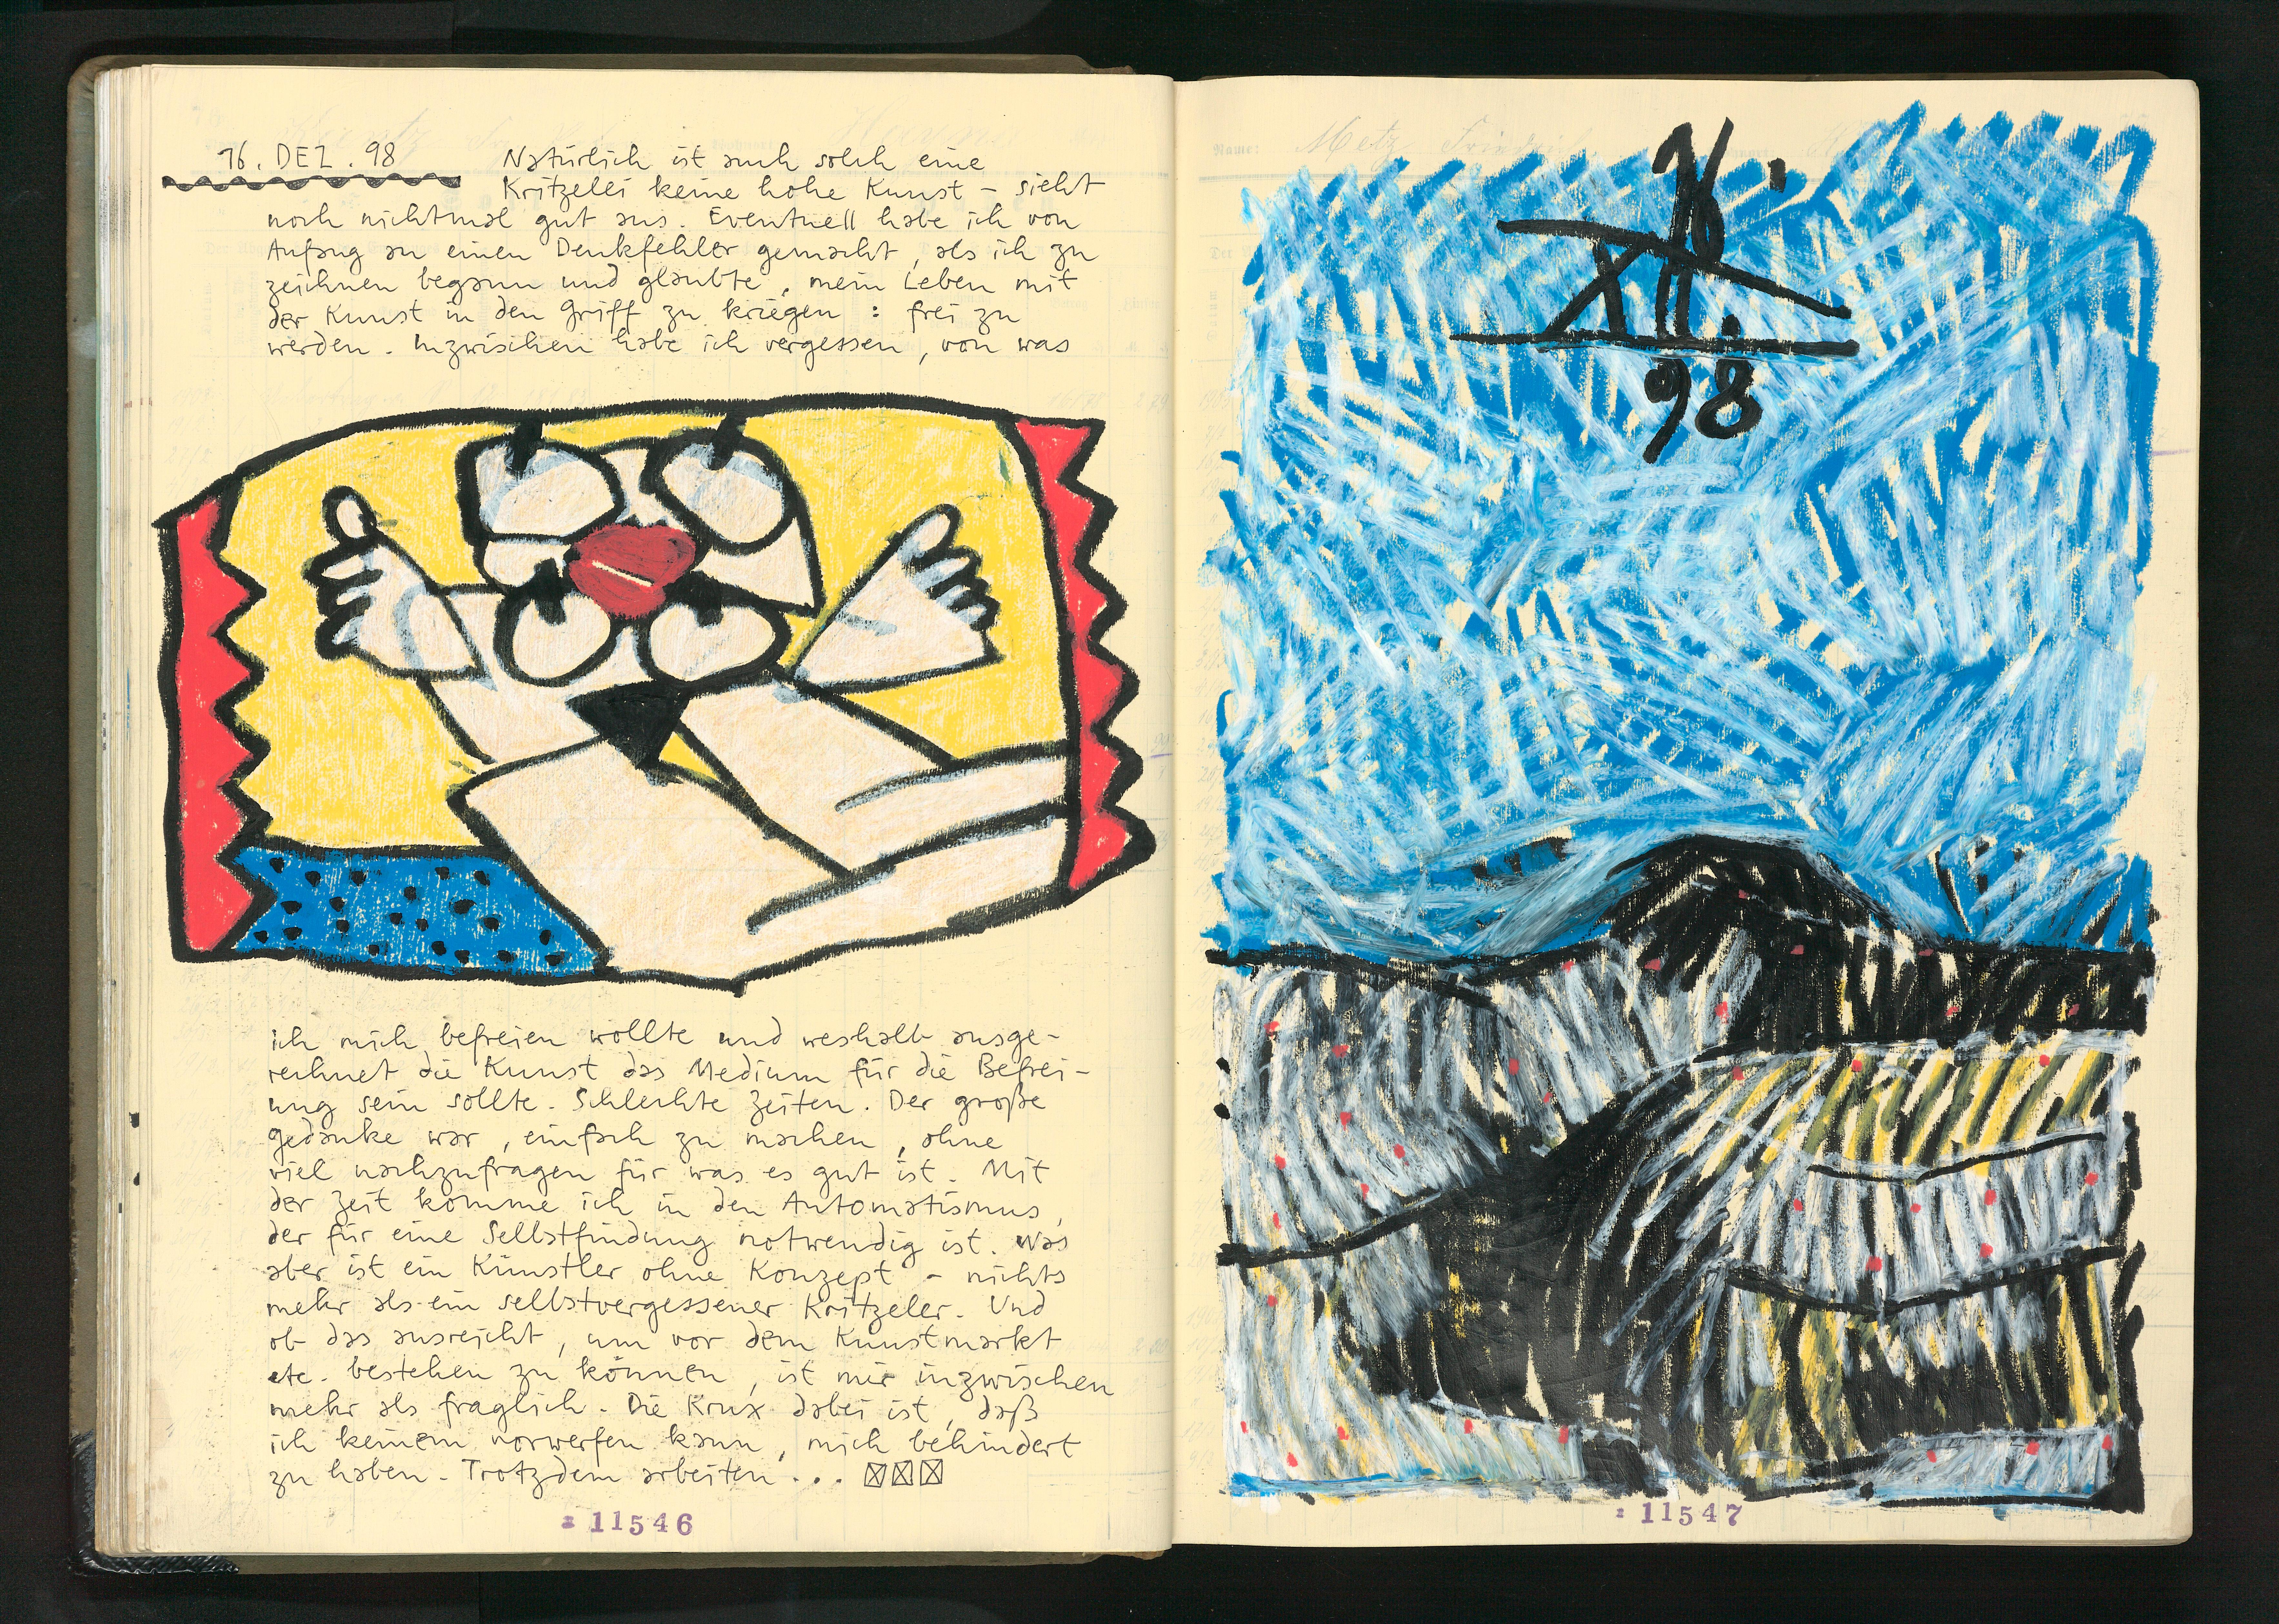 16. DEZ. 98
Natürlich ist auch solch eine
Kritzelei keine hohe Kunst – sieht
noch nichtmal gut aus. Eventuell habe ich von
Anfang an einen Denkfehler gemacht, als ich zu
zeichnen begann und glaubte, mein Leben mit
der Kunst in den Griff zu kriegen : frei zu
werden. Inzwischen habe ich vergessen, von was
ich mich befreien wollte und weshalb ausge-
rechnet die Kunst das Medium für die Befrei-
ung sein sollte. Schlechte Zeiten. Der große
Gedanke war, einfach zu machen, ohne
viel nachzufragen für was es gut ist. Mit
der Zeit komme ich in den Automatismus,
der für eine Selbstfindung notwendig ist. Was
aber ist ein Künstler ohne Konzept – nichts
mehr als ein selbstvergessener Kritzeler. Und
ob das ausreicht, um vor dem Kunstmarkt
etc. bestehen zu können, ist mir inzwischen
mehr als fraglich. Die Krux dabei ist, daß
ich keinem vorwerfen kann, mich behindert
zu haben. Trotzdem arbeiten...
11546
Name: Metz Friedrich
16.
XII.
98
11547